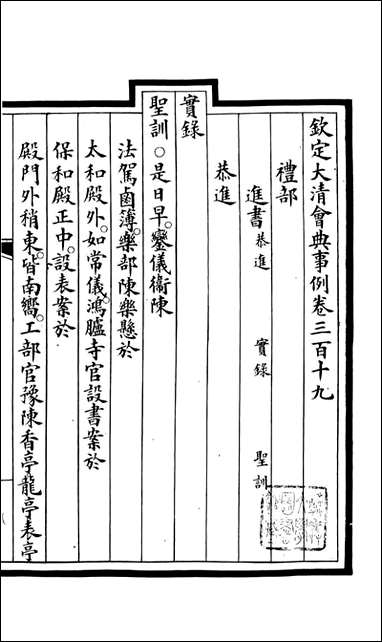 欽定大清會典事例卷三百十九
禮部
進書恭進 實錄 聖訓
恭進
實錄
聖訓○是日早。鑾儀衞陳
法駕鹵簿。樂部陳樂懸於
太和殿外。如常儀。鴻臚寺官設書案於
保和殿正中。設表案於
殿門外稍東。皆南嚮。工部官豫陳香亭龍亭表亭